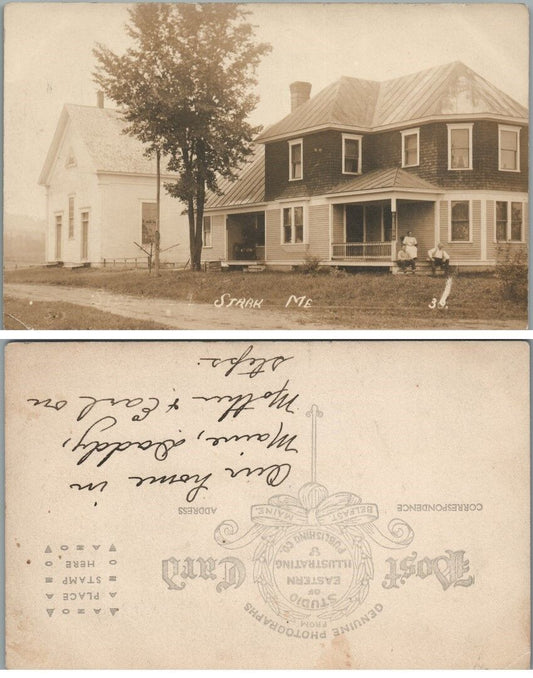 STARK ME 38.
Our home in
Maine, Daddy,
Mother & Earl on
steps.
CORRESPONDENCE
ADDRESS
Post Card
GENUINE PHOTOGRAPHS
FROM
STUDIO
OF
EASTERN
ILLUSTRATING
&
PUBLISHING CO.
BELFAST, MAINE.
AZO
PLACE
STAMP
HERE
AZO